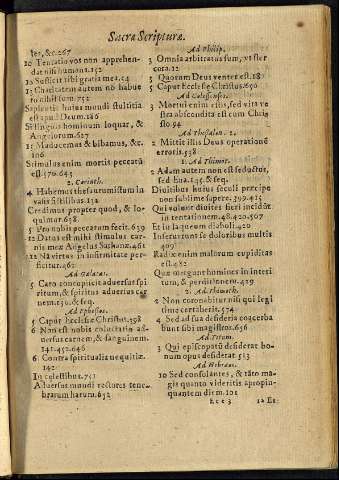 Sacræ Scripturæ.
Ier, &c. 267
10 Tentatio vos non apprehen-
dat nisi humana. 152
12 Sufficit tibi gratia mea. 14
13 Charitatem autem nō habue
ro nihil sum. 752
Sapientia huius mundi stultitia
est apud Deum. 186
Si linguis hominum loquar, &
Angelorum. 627
15 Manducemus & bibamus, &c.
106
Stimulus enim mortis peccatū
est. 570. 643
2. Corinth.
4 Habemus thesaurum istum in
vasis fictilibus. 152
Credimus propter quod, & lo-
quimur. 658
5 Pro nobis peccatum fecit. 639
12 Datus est mihi stimulus car-
nis meæ Angelus Sathanæ. 461
12 Nā virtus in infirmitate per-
ficitur. 462
Ad Galatas.
5 Caro concupiscit aduersus spi
ritum, & spiritus aduersus car
nem. 130. & seq.
Ad Ephesios.
5 Caput Ecclesiæ Christus. 598
6 Non est nobis colluctatio ad-
uersus carnem, & sanguinem.
141. 452. 646
6 Contra spiritualia nequitiæ.
142
In celestibus. 741
Aduersus mundi rectores tene-
brarum harum. 652
Ad Philip.
3 Omnia arbitratus sum, vt ster
cora. 12
3 Quorum Deus venter est. 181
5 Caput Ecclesiæ Christus. 650
Ad Colossenses.
3 Mortui enim estis, sed vita ve
stra abscondita est cum Chri-
sto. 94
Ad Thessalon. 2.
2 Mittit illis Deus operationē
erroris. 538
1. Ad Thimot.
2 Adam autem non est seductus,
sed Eua. 145. & seq.
Diuitibus huius seculi præcipe
non sublime sapere. 399. 415
Qui volunt diuites fieri incidūt
in tentationem. 48. 420. 567
Et in laqueum diaboli. 420
Inseruntur se doloribus multis
409
Radix enim malorum cupiditas
est. 482
Quæ mergunt homines in interi
tum, & perditionem. 429
2. Ad Thimoth.
2 Non coronabitur nisi qui legi
time certaberit. 574
4 Sed ad sua desideria coacerba
bunt sibi magistros. 656
Ad Titum.
3 Qui episcopatū desiderat bo-
num opus desiderat. 513
Ad Hebræos.
10 Sed consolantes, & tāto ma-
gis quanto videritis apropin-
quantem diem. 101
Eee 3 12 Et